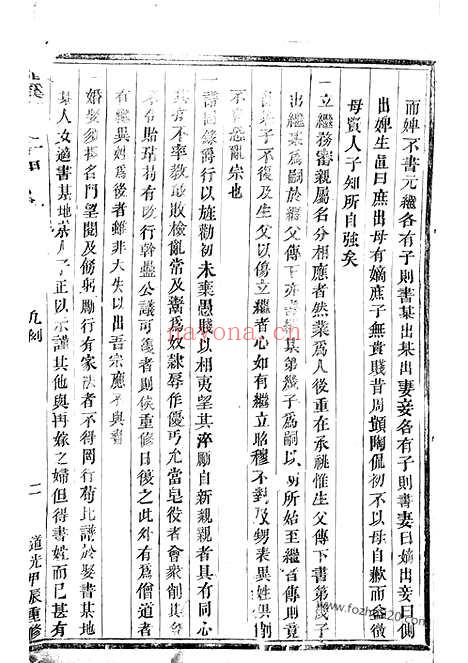 而婢不書元繼各有子則書某出某出妻妾各有子則書妻曰嫡出妾曰側
出婢生直曰庶出母有嫡庶子無貴賤昔周顗陶侃初不以母自歉而益徵
母賢人子知所自強矣
一立繼務審親屬名分相應者然業爲人後重在承祧惟生父傳下書第幾子
出繼某爲嗣於繼父傳下亦書某第幾子爲嗣以明所始至繼者傳則竟
書某子不復及生父以傷立繼者心如有繼立昭穆不對及甥表異姓俱削
不書恐亂宗也
一書銜錄爵行以旌勸初未棄愚賤以相夷望其淬勵自新親親者具有同心
其有不率教敢敗檢亂常及鬻爲奴隸辱作優丐充當皂役者會衆削其
有繼異姓爲後者雖非大失以出吾宗應不與書
婚娶務擇名門望閥及飭躬勵行有家法者不得罔行苟比謹於娶書某地
某人女適書某地某人子正以示謹其他與再嫁之婦但得書姓而已甚有
凡例
二
道光甲辰重修
nayona.cn
www.fozhu920.com